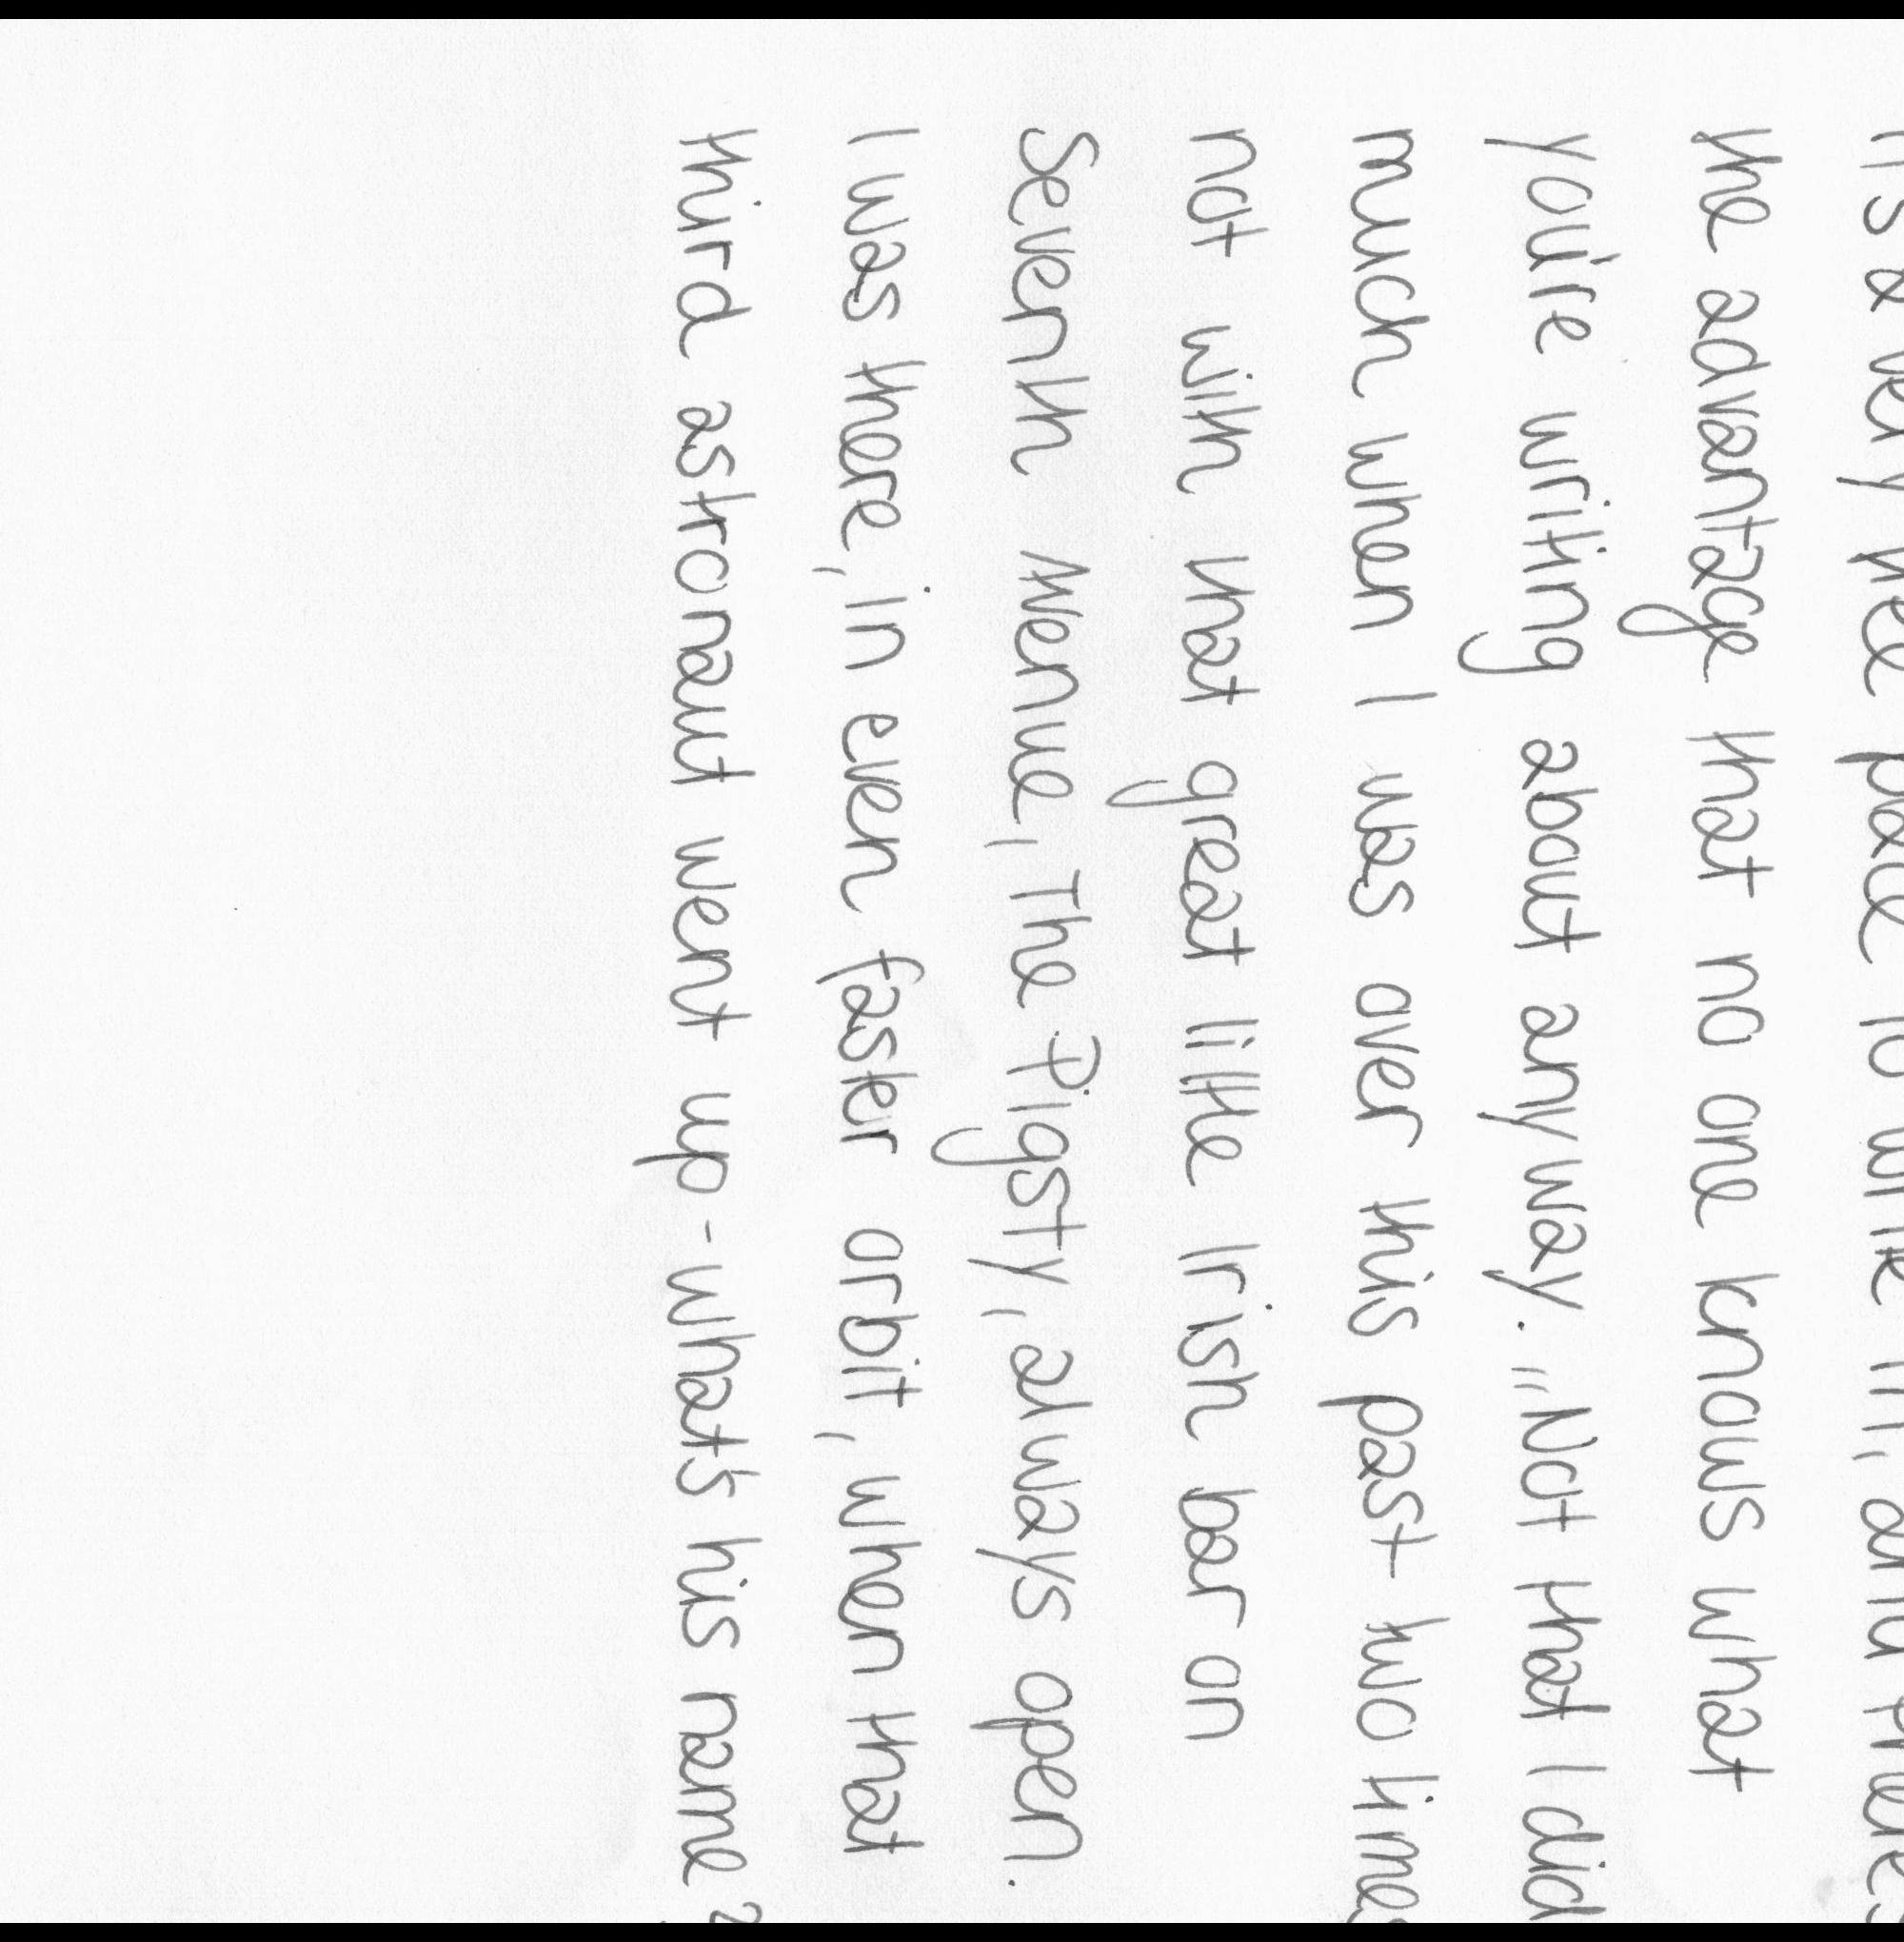 It's a very nice place to write in, and there's
the advantage that no one knows what
you're writing about anyway. "Not that I did
much when I was over this past two times
not with that great little Irish bar on
Seventh Avenue, The Pigsty, always open.
I was there, in even faster orbit, when that
third astronaut went up-what's his name?